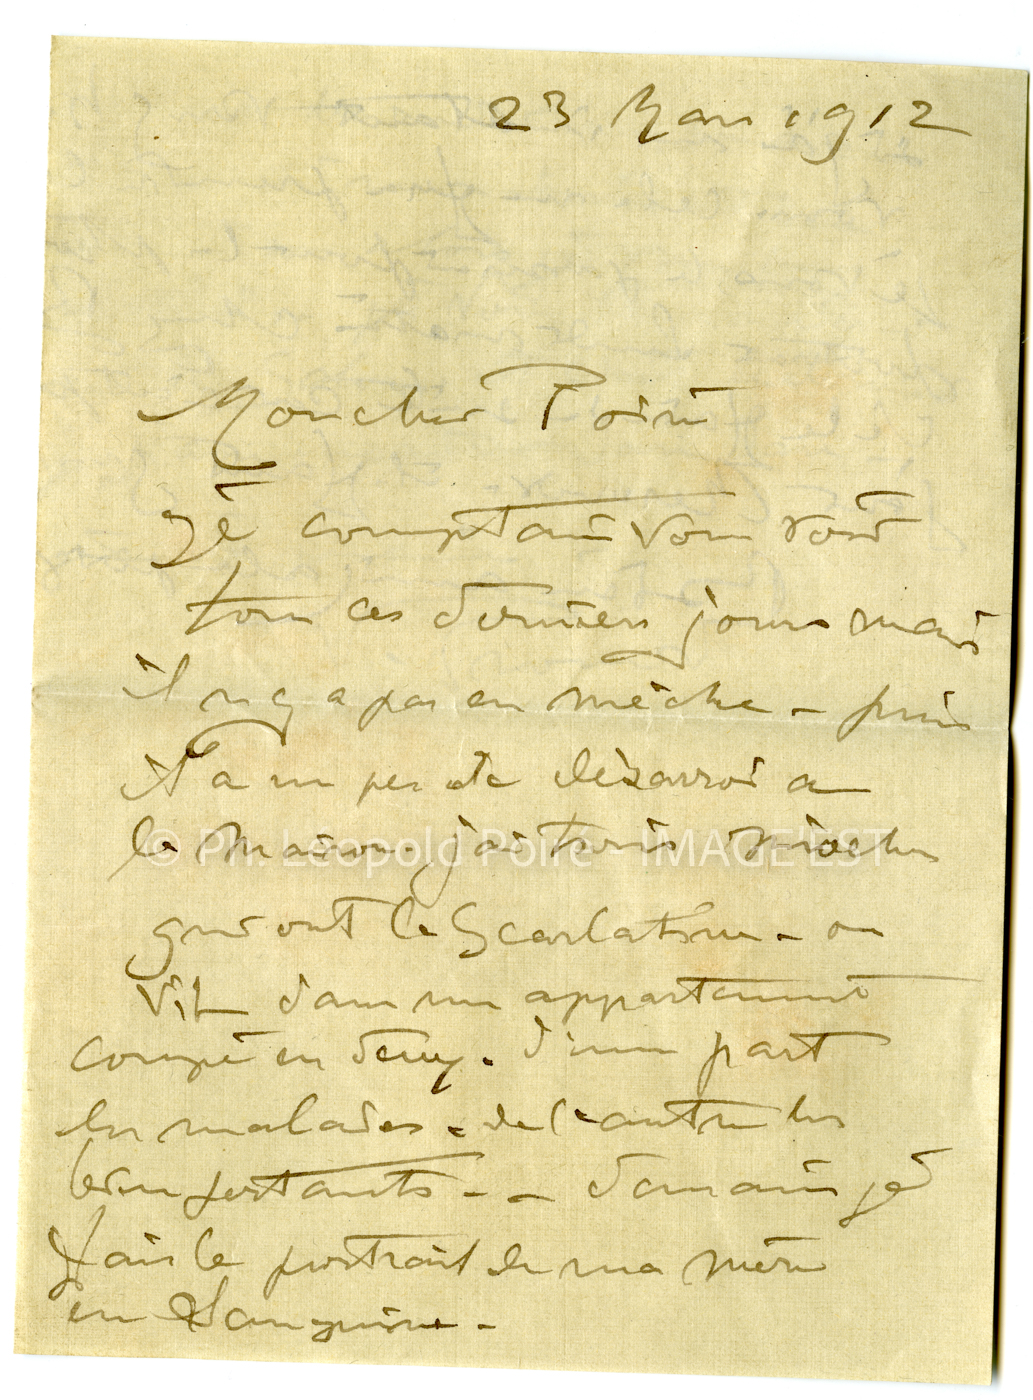 23 Mars 1912
Mon cher Poiré
Je comptais vous voir
tous ces derniers jours mais
il n'y a pas eu mèche - puis
Il a un peu de désarroi à
la maison. j'ai trois mioches
© Ph. Léopold Poiré - IMAGE'EST
qui ont la Scarlatine - on
vit dans un appartement
coupé en deux. d'une part
les malades - de l'autre les
bien portants - - demain je
fais le portrait de ma mère
en Sanguine -